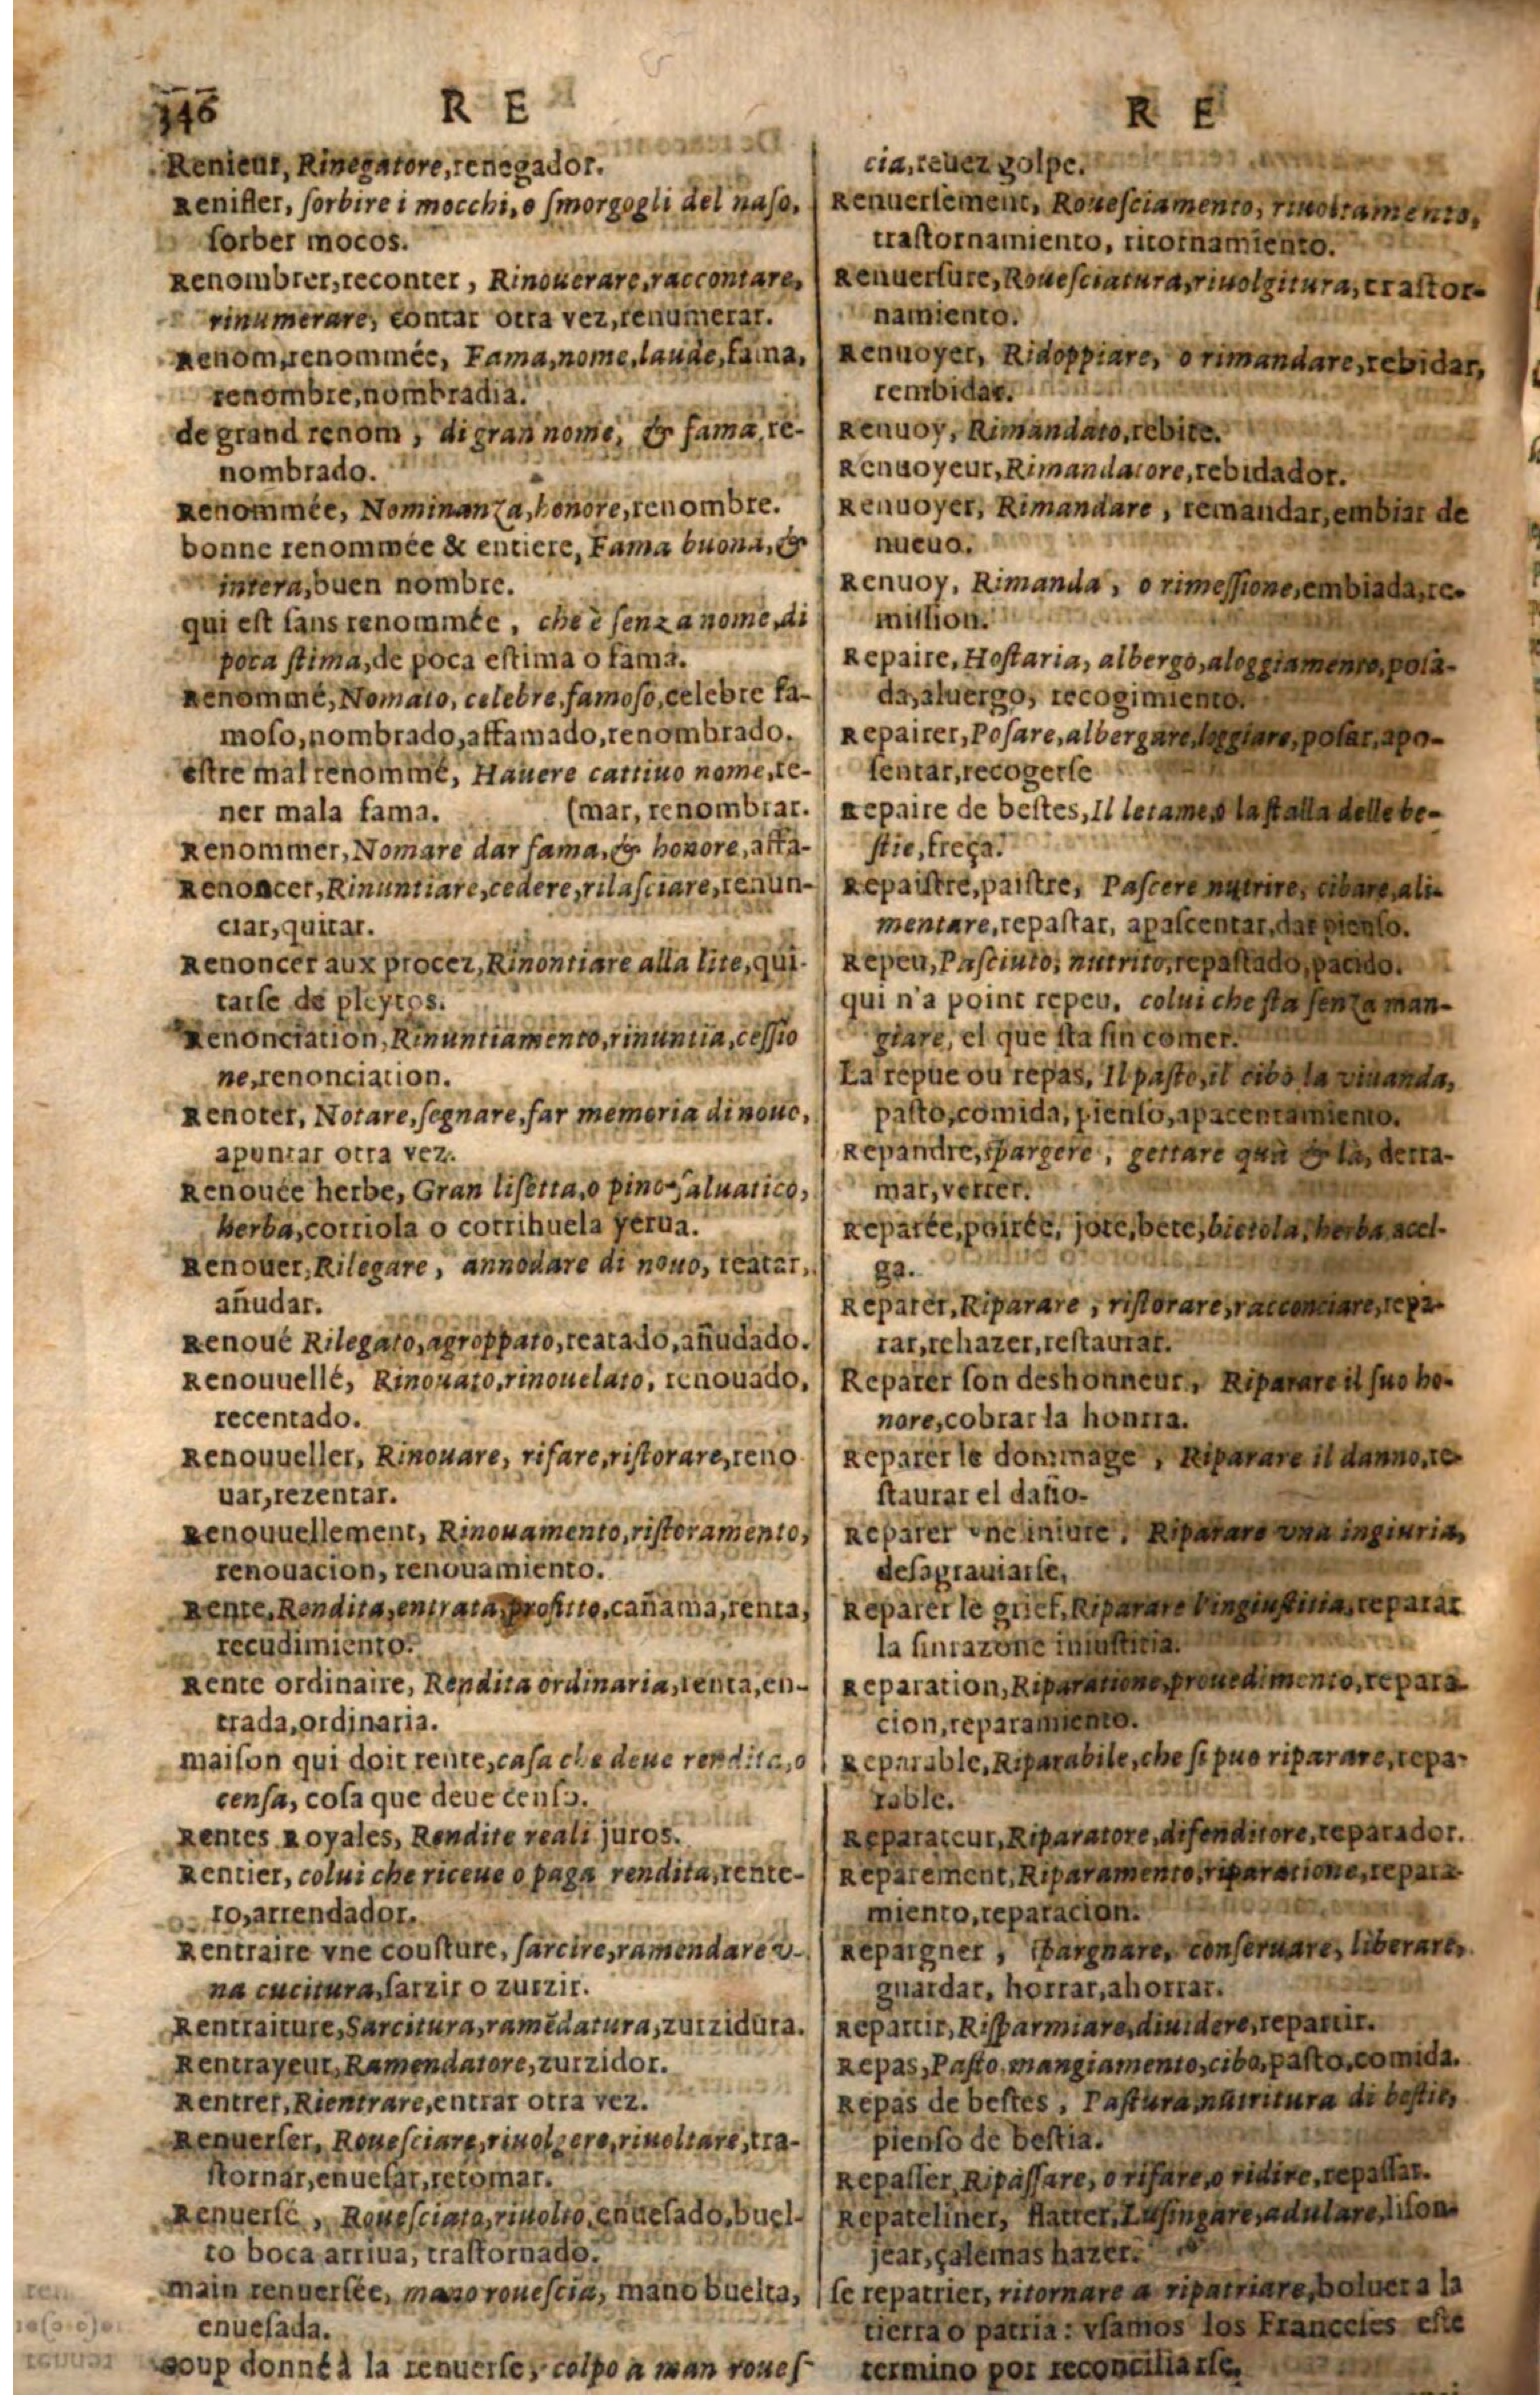 346 R E
Renieur, Rinegatore, renegador.
Renifler, sorbire i mocchi, o smorgogli del naso,
sorber mocos.
Renombrer, reconter, Rinouerare, raccontare,
rinumerare, contar otra vez, renumerar.
Renom, renommée, Fama, nome, laude, fama,
renombre, nombradia.
de grand renom, di gran nome, & fama, re-
nombrado.
Renommée, Nominanza, honore, renombre.
bonne renommée & entiere, Fama buona, &
intera, buen nombre.
qui est sans renommée, che è senza nome, di
poca stima, de poca estima o fama.
Renommé, Nomato, celebre, famoso, celebre fa-
moso, nombrado, affamado, renombrado.
estre mal renommé, Hauere cattiuo nome, te-
ner mala fama. (mar, renombrar.
Renommer, Nomare dar fama, & honore, affa-
Renoncer, Rinuntiare, cedere, rilasciare, renun-
ciar, quitar.
Renoncer aux procez, Rinontiare alla lite, qui-
tarse de pleytos.
Renonciation, Rinuntiamento, rinuntia, cessio
ne, renonciation.
Renoter, Notare, segnare, far memoria di nouo,
apuntar otra vez.
Renouée herbe, Gran lisetta, o pino saluatico,
herba, corriola o corrihuela yerua.
Renouer, Rilegare, annodare di nouo, reatar,
añudar.
Renoué Rilegato, agroppato, reatado, añudado.
Renouuellé, Rinouato, rinouelato, renouado,
recentado.
Renouueller, Rinouare, rifare, ristorare, reno
uar, rezentar.
Renouuellement, Rinouamento, ristoramento,
renouacion, renouamiento.
Rente, Rendita, entrata, profitto, cañama, renta,
recudimiento.
Rente ordinaire, Rendita ordinaria, renta, en-
trada, ordinaria.
maison qui doit rente, casa che deue rendita, o
censa, cosa que deue censo.
Rentes Royales, Rendite reali juros.
Rentier, colui che riceue o paga rendita, rente-
ro, arrendador.
Rentraire vne cousture, sarcire, ramendare v-
na cucitura, sarzir o zurzir.
Rentraiture, Sarcitura, ramēdatura, zurzidura.
Rentrayeur, Ramendatore, zurzidor.
Rentrer, Rientrare, entrar otra vez.
Renuerser, Rouesciare, riuolgere, riuoltare, tra-
stornar, enuesar, retornar.
Renuersé, Rouesciato, riuolto, enuesado, buel-
to boca arriua, trastornado.
main renuersée, mano rouescia, mano buelta,
enuesada.
coup donné à la renuerse, colpo a man roues-
R E
cia, reuez golpe.
Renuersement, Rouesciamento, riuoltamento,
trastornamiento, ritornamiento.
Renuersure, Rouesciatura, riuolgitura, trastor-
namiento.
Renuoyer, Ridoppiare, o rimandare, rebidar,
rembidar.
Renuoy, Rimandato, rebite.
Renuoyeur, Rimandatore, rebidador.
Renuoyer, Rimandare, remandar, embiar de
nueuo.
Renuoy, Rimanda, o rimessione, embiada, re-
mission.
Repaire, Hostaria, albergo, aloggiamento, posa-
da, aluergo, recogimiento.
Repairer, Posare, albergare, loggiare, posar, apo-
sentar, recogerse
Repaire de bestes, Il letame, o la stalla delle be-
stie, freça.
Repaistre, paistre, Pascere nutrire, cibare, ali-
mentare, repastar, apascentar, dar pienso.
Repeu, Pasciuto, nutrito, repastado, pacido.
qui n'a point repeu, colui che sta senza man-
giare, el que sta sin comer.
La repue ou repas, Il pasto, il cibo la viuanda,
pasto, comida, pienso, apacentamiento.
Repandre, spargere, gettare quà & là, derra-
mar, verter.
Reparée, poirée, jote, bete, bietola, herba acel-
ga.
Reparer, Riparare, ristorare, racconciare, repa-
rar, rehazer, restaurar.
Reparer son deshonneur, Riparare il suo ho-
nore, cobrar la honrra.
Reparer le dommage, Riparare il danno, re-
staurar el daño.
Reparer vne iniure, Riparare vna ingiuria,
desagrauiarse,
Reparer le grief, Riparare l'ingiustitia, reparar
la sinrazon e iniustitia.
Reparation, Riparatione, prouedimento, repara-
cion, reparamiento.
Reparable, Riparabile, che si puo riparare, repa-
rable.
Reparateur, Riparatore, difenditore, reparador.
Reparement, Riparamento, riparatione, repara-
miento, reparacion.
Repargner, spargnare, conseruare, liberare,
guardar, horrar, ahorrar.
Repartir, Risparmiare, diuidere, repartir.
Repas, Pasto mangiamento, cibo, pasto, comida.
Repas de bestes, Pastura, nutritura di bestie,
pienso de bestia.
Repasser Ripassare, o rifare, o ridire, repassar.
Repateliner, flatter, Lusingare, adulare, lison-
jear, çalemas hazer.
se repatrier, ritornare a ripatriare, boluer a la
tierra o patria: vsamos los Franceses este
termino por reconciliarse.